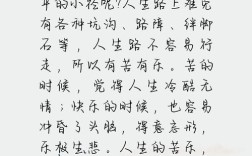 平的小径呢?人生路上难免
有各种坑沟、路障、绊脚
石等,人生路不容易行
走,所以有苦有乐。苦的
时候,觉得人生冷酷无
情;快乐的时候,也容易
冲昏了头脑,得意忘形,
乐极生悲。人生的苦乐,